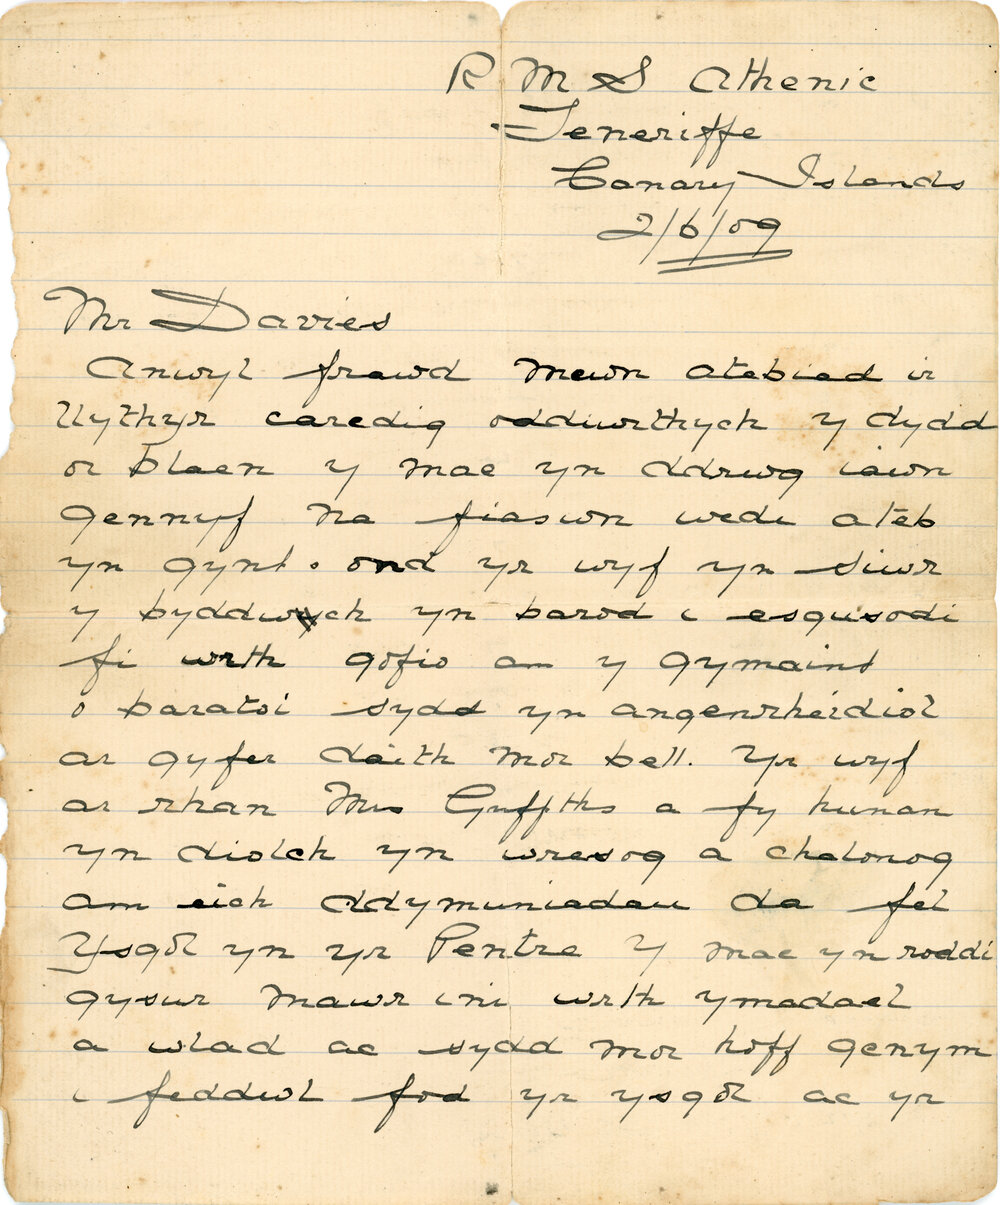 R M S Athenic
Teneriffe
Canary Islands
2/6/09
Mr Davies
Anwyl frawd mewn atebiad ir
llythyr caredig oddiwrthych y dydd
or blaen y mae yn ddrwg iawn
gennyf na fiaswn wedi ateb
yn gynt. ond yr wyf yn siwr
y byddwych yn barod i esgusodi
fi wrth gofio am y gymaint
o baratoi sydd yn angenrheidiol
ar gyfer daith mor bell. Yr wyf
ar rhan Mrs Griffiths a fy hunan
yn diolch yn wresog a chalonog
am eich ddymuniadau da fel
Ysgol yn yr Pentre y mae yn roddi
gysur mawr ini wrth ymadael
a wlad ac sydd mor hoff genym
i feddwl fod yr ysgol ac yr